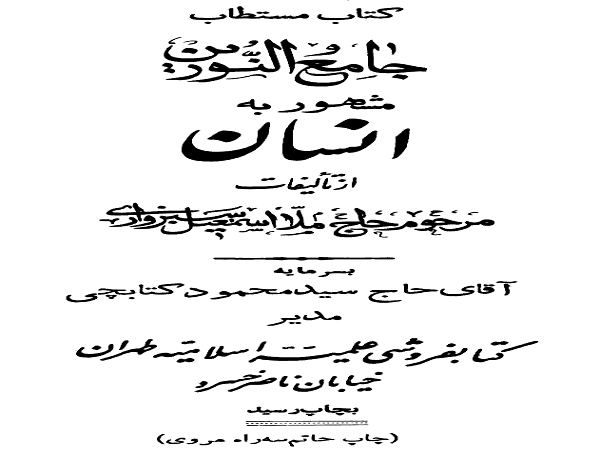 کتاب مستطاب
جامع النّورین
مشهور به
انسان
از تألیفات
مرحوم حاج ملّا اسمعیل سبزواری
بسرمایه
آقای حاج سید محمود کتابچی
مدیر
کتابفروشی علمیّه اسلامیّه طهران
خیابان ناصر خسرو
بچاپ رسید
(چاپ حاتم سه راه مروی)